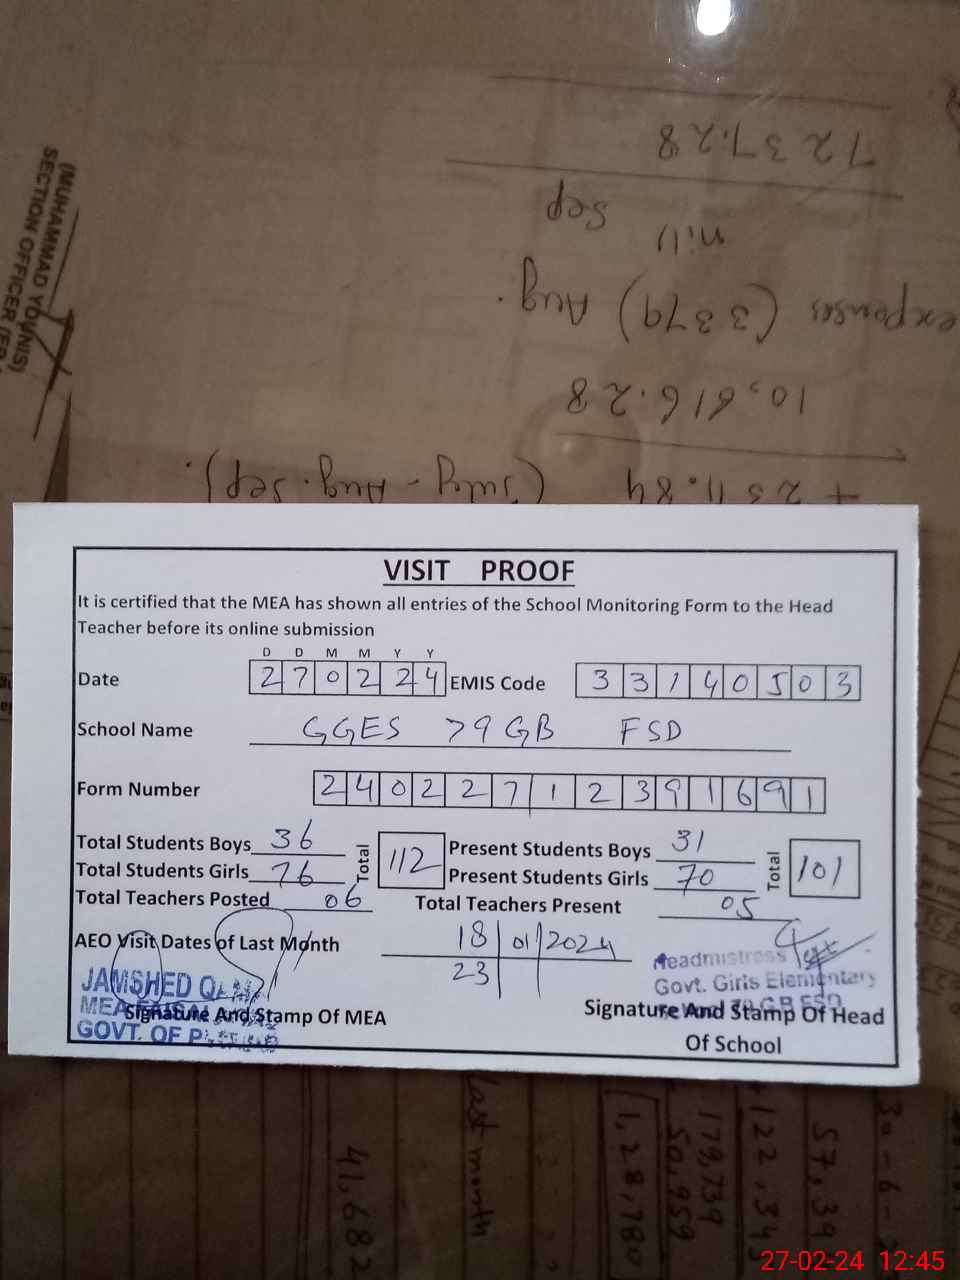 7237.28
Sep
nill
expenses (3379) Aug.
10,616.28
+ 2511.84 (July - Aug. Sep).
(MUHAMMAD YOUNIS)
SECTION OFFICER
VISIT PROOF
It is certified that the MEA has shown all entries of the School Monitoring Form to the Head
Teacher before its online submission
D D M M Y Y
Date 2 7 0 2 2 4 EMIS Code 3 3 1 4 0 5 0 3
School Name GGES 79 GB FSD
Form Number 2 4 0 2 2 7 1 2 3 9 1 6 9 1
Total Students Boys 36 Total 112 Present Students Boys 31 Total 101
Total Students Girls 76 Present Students Girls 70
Total Teachers Posted 06 Total Teachers Present 05
AEO Visit Dates of Last Month 18 | 01 | 2024
23
JAMSHED
MEA
GOVT. OF
Signature And Stamp Of MEA
Headmistress
Govt. Girls Elementary
79 G.B FSD
Signature And Stamp Of Head
Of School
last month
41,682
1,28,780
50,959
179,739
57,39
27-02-24 12:45